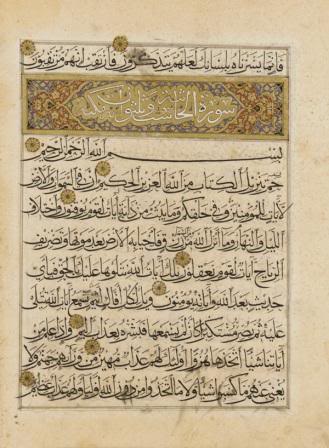 فانما يسرناه بلسانك لعلهم يتذكرون فارتقب انهم مرتقبون
سورة الجاثية وثلثون
بسم الله الرحمن الرحيم
حم تنزيل الكتاب من الله العزيز الحكيم ان في السموات والارض
لايات للمؤمنين وفي خلقكم وما يبث من دابة ايات لقوم يوقنون واختلاف
الليل والنهار وما انزل الله من السماء من رزق فاحيا به الارض بعد موتها وتصريف
الرياح ايات لقوم يعقلون تلك ايات الله نتلوها عليك بالحق فباي
حديث بعد الله واياته يؤمنون ويل لكل افاك اثيم يسمع ايات الله تتلى
عليه ثم يصر مستكبرا كان لم يسمعها فبشره بعذاب اليم واذا علم من
اياتنا شيئا اتخذها هزوا اولئك لهم عذاب مهين من ورائهم جهنم ولا
يغني عنهم ما كسبوا شيئا ولا ما اتخذوا من دون الله اولياء ولهم عذاب عظيم